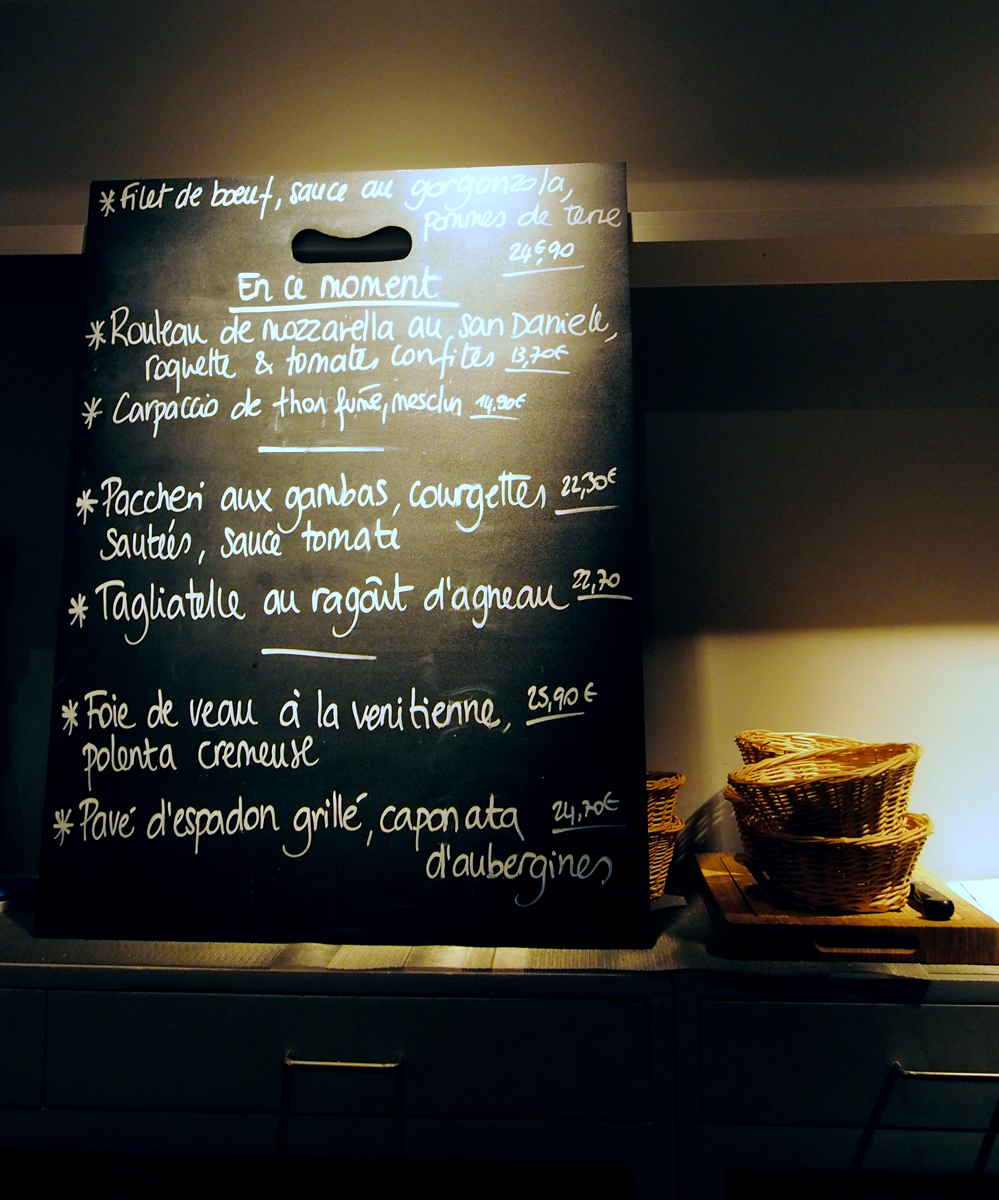 * Filet de bœuf, sauce au gorgonzola,
pommes de terre
24€,90
En ce moment
* Rouleau de mozzarella au san Daniele,
roquette & tomates confites 13,70€
* Carpaccio de thon fumé, mesclun 14,90€
* Paccheri aux gambas, courgettes 22,30€
sautéés, sauce tomate
* Tagliatelle au ragoût d'agneau 22,70
* Foie de veau à la venitienne, 25,90€
polenta cremeuse
* Pavé d'espadon grillé, caponata 24,70€
d'aubergines